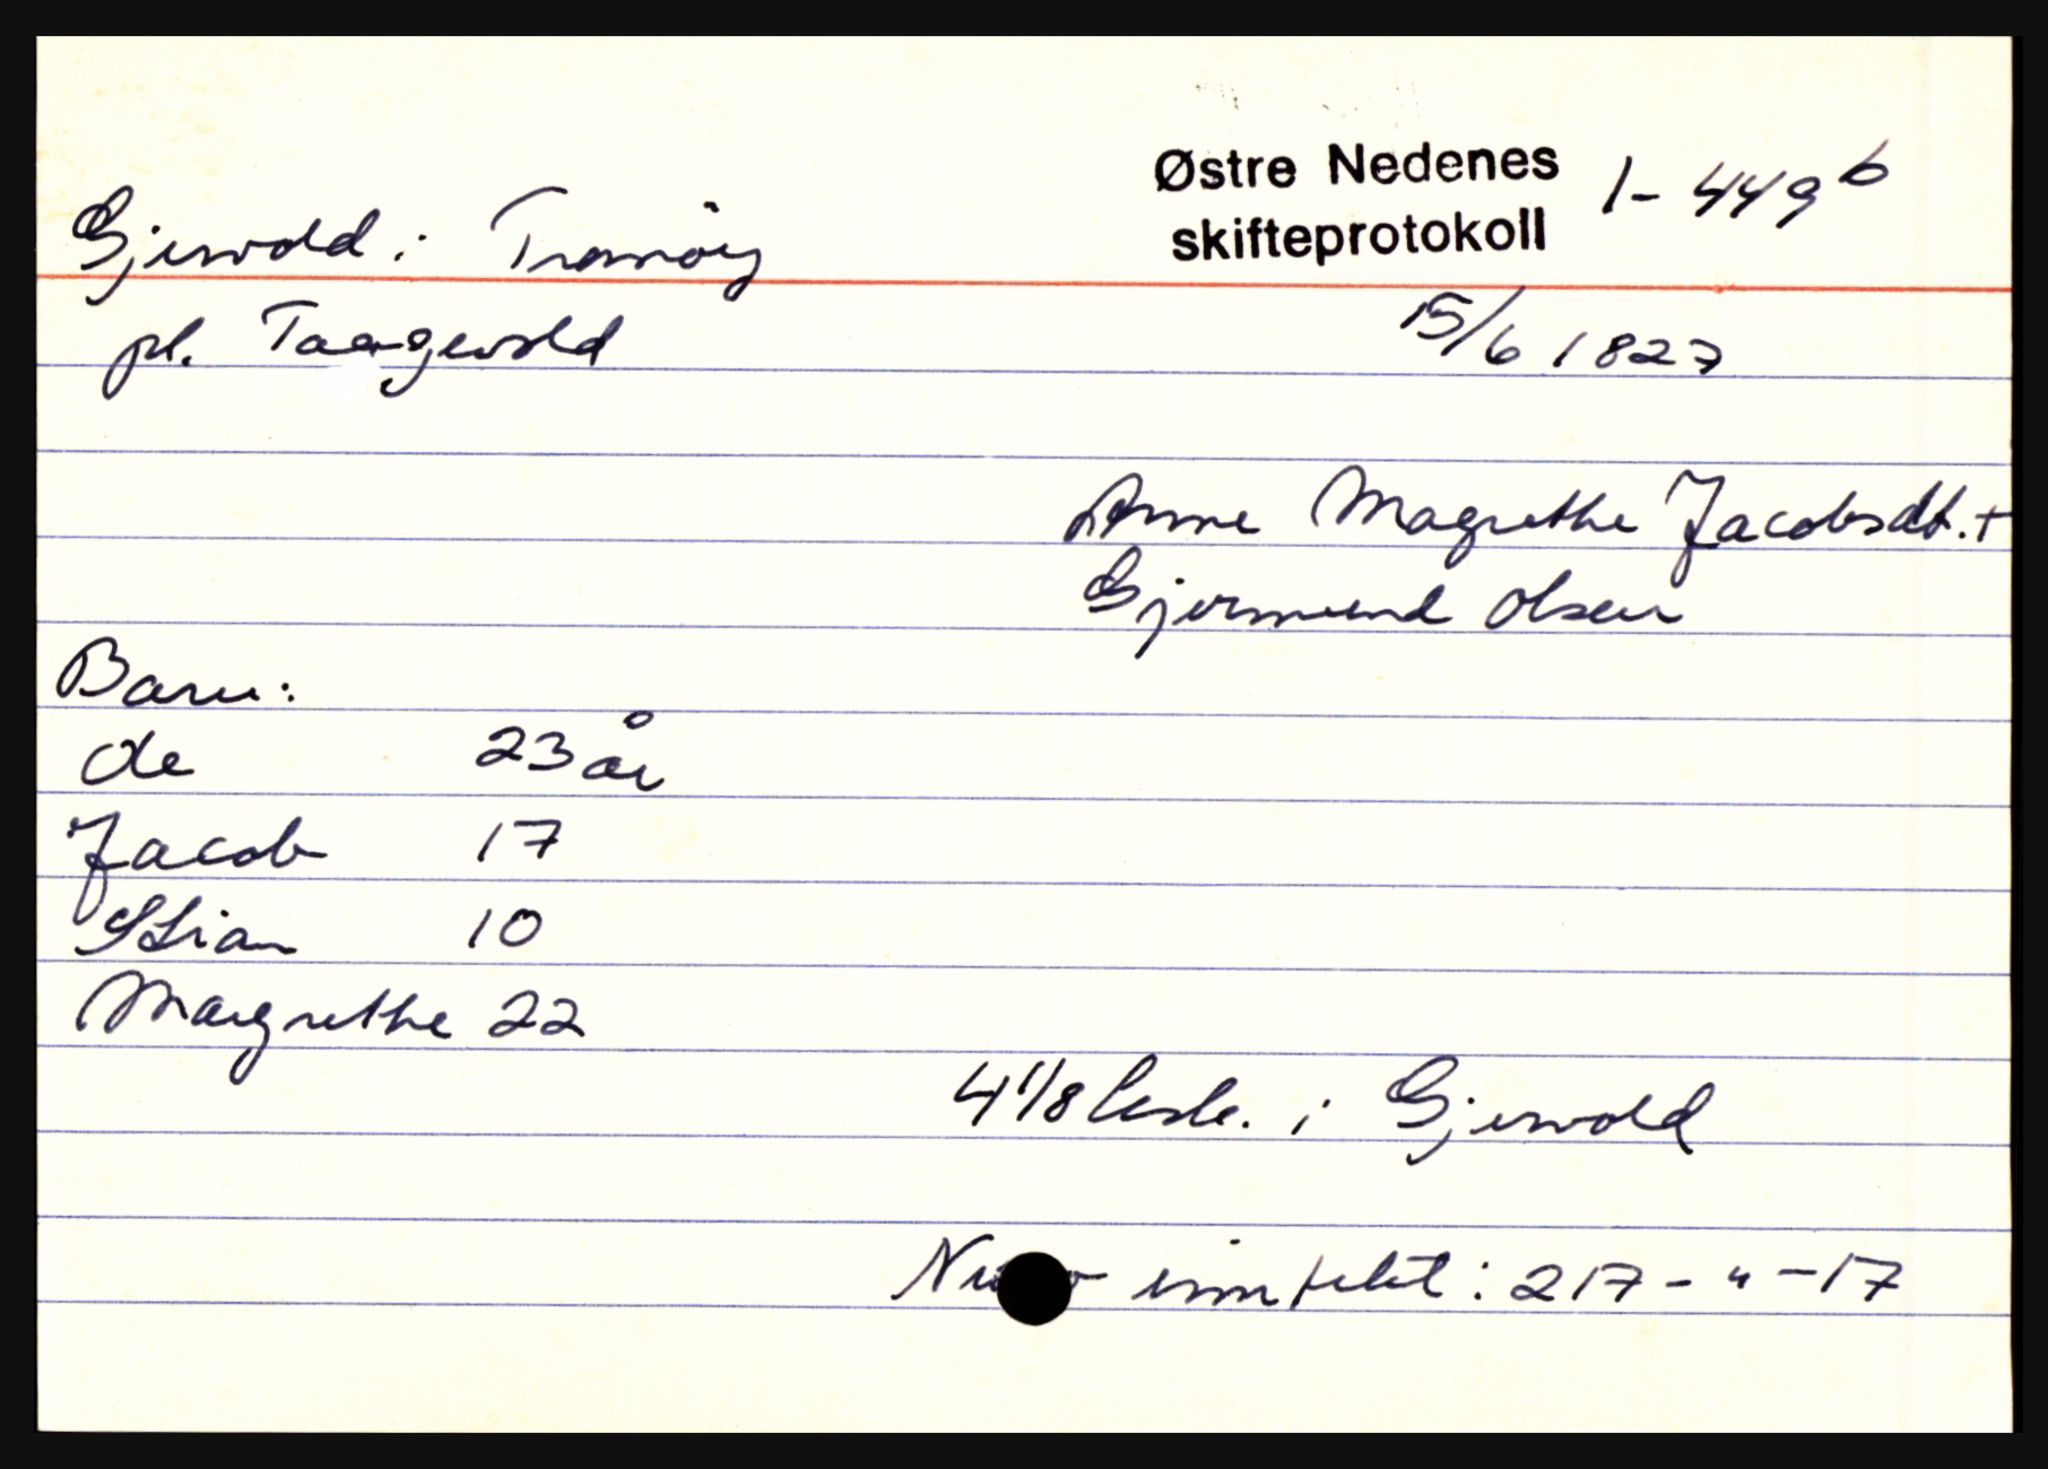 Østre Nedenes 1-449b
skifteprotokoll
Gjervold i Tromöy
pl. Taagevold
15/6 1827
Anne Magrethe Jacobsdt. +
Gjermund Olsen
Barn:
Ole 23 år
Jacob 17
Stian 10
Margrethe 22
4 1/8 i Gjervold
: 217 - " - 17